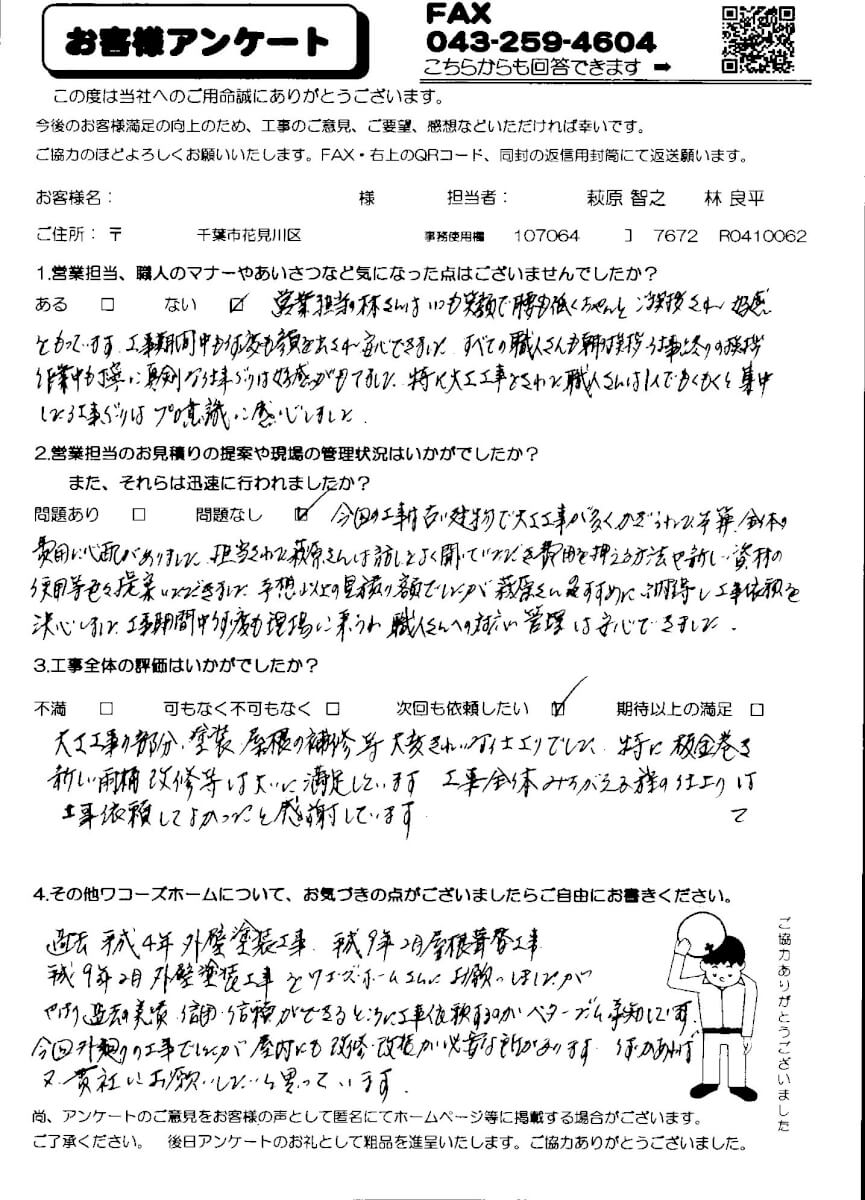 お客様アンケート
FAX
043-259-4604
こちらからも回答できます ➡
この度は当社へのご用命誠にありがとうございます。
今後のお客様満足の向上のため、工事のご意見、ご要望、感想などいただければ幸いです。
ご協力のほどよろしくお願いいたします。FAX・右上のQRコード、同封の返信用封筒にて返送願います。
お客様名： 様 担当者： 萩原 智之 林 良平
ご住所： 〒 千葉市花見川区 事務使用欄 107064 ] 7672 R0410062
1.営業担当、職人のマナーやあいさつなど気になった点はございませんでしたか？
ある □ ない ☑ 営業担当の林さんはいつも笑顔で腰も低くちゃんとご挨拶され 好感
をもっています. 工事期間中も何度も顔を出され安心できました. すべての職人さんも朝の挨拶 仕事終りの挨拶
作業中も丁寧に真剣な仕事ぶりは好感がもてました. 特に大工工事をされた職人さんは1人でもくもくと集中
した仕事ぶりは プロ意識に感心しました.
2.営業担当のお見積りの提案や現場の管理状況はいかがでしたか？
また、それらは迅速に行われましたか？
問題あり □ 問題なし ☑ 今回の工事は古い建物で大工工事が多くかぎられた予算、全体の
費用に心配がありました. 担当された萩原さんは話しをよく聞いていただき費用を押える方法や新しい資材の
使用等色々提案いただきました. 予想以上の見積り額でしたが 萩原さんのおすすめに納得し工事依頼を
決心しました. 工事期間中何度も現場に来られ 職人さんへの対応い 管理は安心できました.
3.工事全体の評価はいかがでしたか？
不満 □ 可もなく不可もなく □ 次回も依頼したい ☑ 期待以上の満足 □
大工工事の部分、塗装 屋根の補修等 大変きれいな仕上りでした. 特に 板金巻き
新しい雨樋 改修等は大いに満足しています 工事全体みちがえる様の仕上りは
工事依頼してよかったと感謝しています. て
4.その他ワコーズホームについて、お気づきの点がございましたらご自由にお書きください。
過去 平成4年 外壁塗装工事. 平成9年2月屋根葺替工事
平成9年2月 外壁塗装工事 をワコーズ・ホームさんにお願いしましたが
やはり過去の実績 信用・信頼ができるところに工事依頼するのがベターだと承知しています.
今回外廻りの工事でしたが 屋内にも 改修・改造が必要な所があります. 何かあれば
又 貴社にお願いしたいと思っています.
ご協力ありがとうございました
尚、アンケートのご意見をお客様の声として匿名にてホームページ等に掲載する場合がございます。
ご了承ください。 後日アンケートのお礼として粗品を進呈いたします。ご協力ありがとうございました。